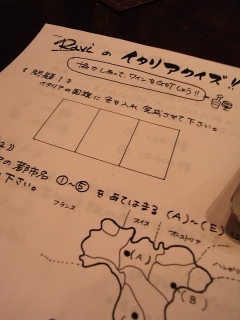 Ravi の イタリアクイズ!!
協力しあって、ワインをGETしよう!!
<問題1>
イタリアの国旗に色を入れ完成させて下さい。
の都市名 ①〜⑤ をあてはまる (A)〜(E)に
下さい。
フランス
スイス
オーストリア
ハンガ
(A)
(B)